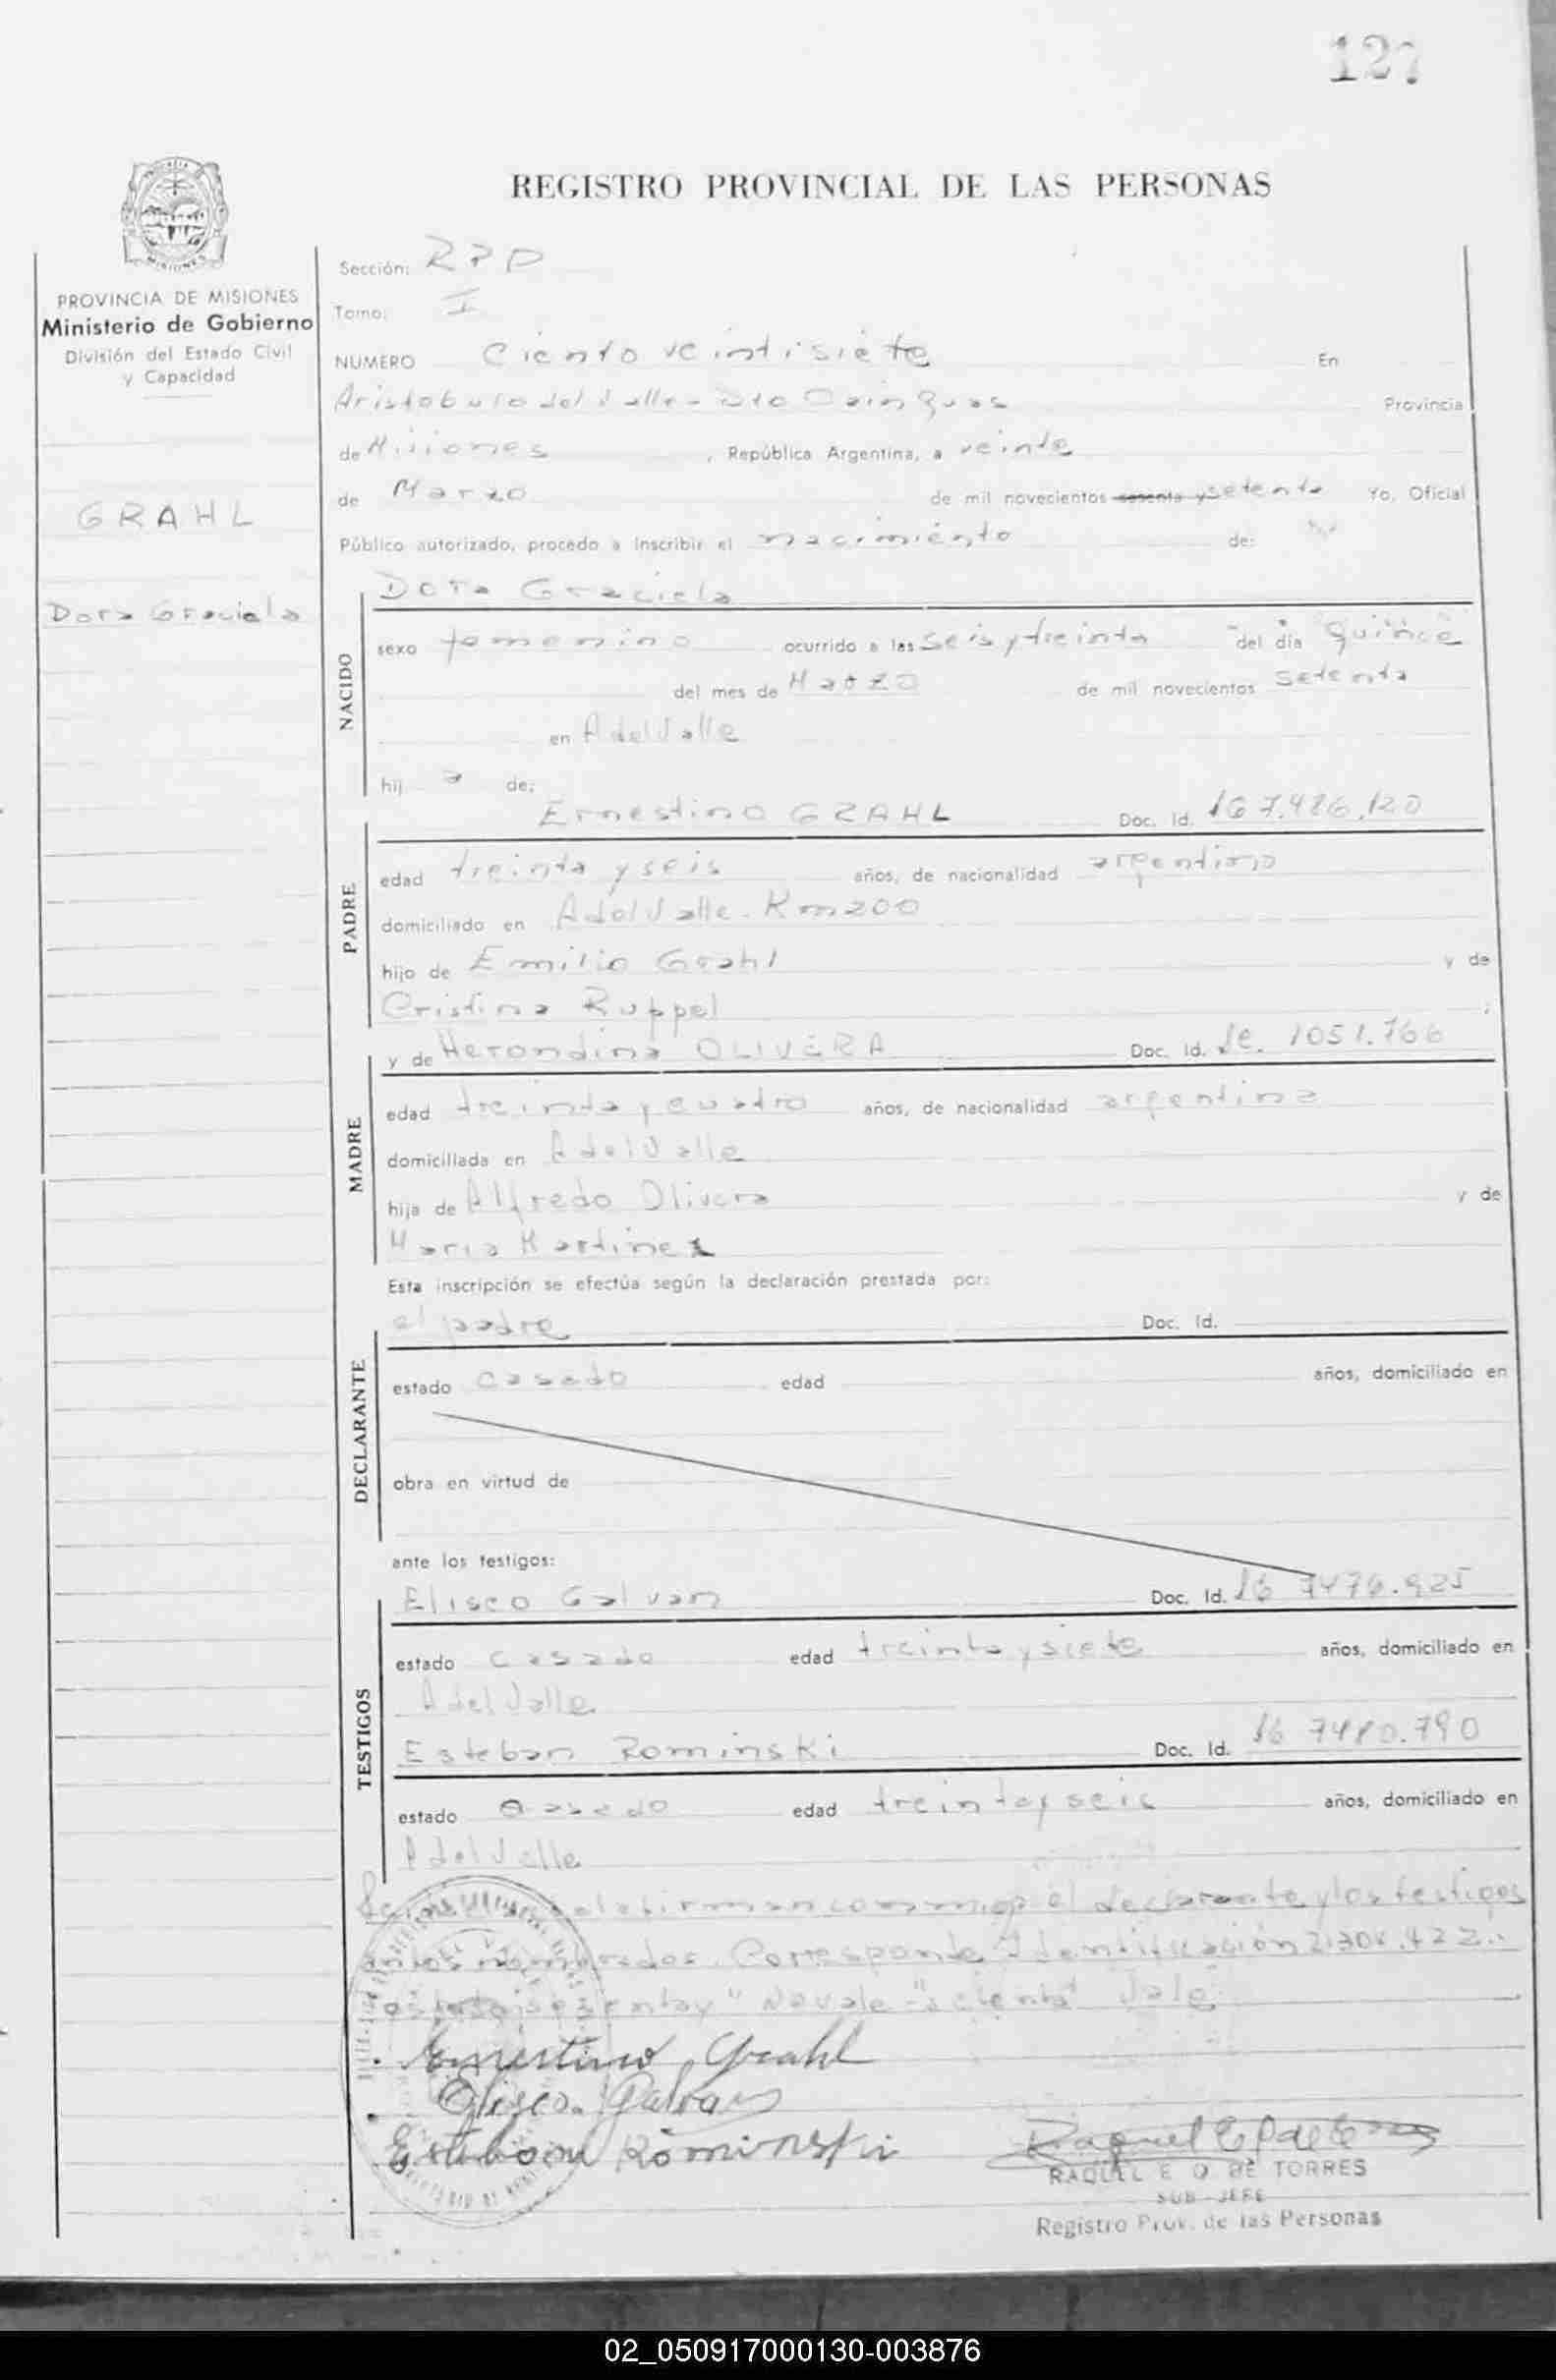 127
REGISTRO PROVINCIAL DE LAS PERSONAS
MISIONES
PROVINCIA DE MISIONES
Ministerio de Gobierno
División del Estado Civil
y Capacidad
GRAHL
Dora Graciela
Sección: RPD
Tomo: I
NUMERO Ciento veintisiete En
Aristobulo del Valle - Dto Cainguas Provincia
de Misiones , República Argentina, a veinte
de Marzo de mil novecientos sesenta y setenta Yo, Oficial
Público autorizado, procedo a inscribir el nacimiento de:
Dora Graciela
NACIDO
sexo femenino ocurrido a las seis y treinta del día quince
del mes de Marzo de mil novecientos setenta
en A del Valle
hij a de:
Ernestino GRAHL Doc. Id. 7.486.120
PADRE
edad treinta y seis años, de nacionalidad argentino
domiciliado en A del Valle - Km 200
hijo de Emilio Grahl y de
Cristina Ruppel ;
y de Herondina OLIVERA Doc. Id. 1051.766
MADRE
edad treinta y cuatro años, de nacionalidad argentina
domiciliada en A del Valle
hija de Alfredo Olivera y de
Maria Martinez
Esta inscripción se efectúa según la declaración prestada por:
el padre Doc. Id.
DECLARANTE
estado casado edad años, domiciliado en
obra en virtud de
ante los testigos:
Eliseo Galvan Doc. Id. 7476.925
TESTIGOS
estado casado edad treinta y siete años, domiciliado en
A del Valle
Esteban Rominski Doc. Id. 7480.790
estado casado edad treinta y seis años, domiciliado en
A del Valle
firman conmigo el declarante y los testigos
antes nombrados. Corresponde Identificación
"sesenta y" No vale - "setenta" Vale
Ernestino Grahl
Eliseo Galvan
Esteban Rominski
RAQUEL E O DE TORRES
SUB-JEFE
Registro Prov. de las Personas
02_050917000130-003876